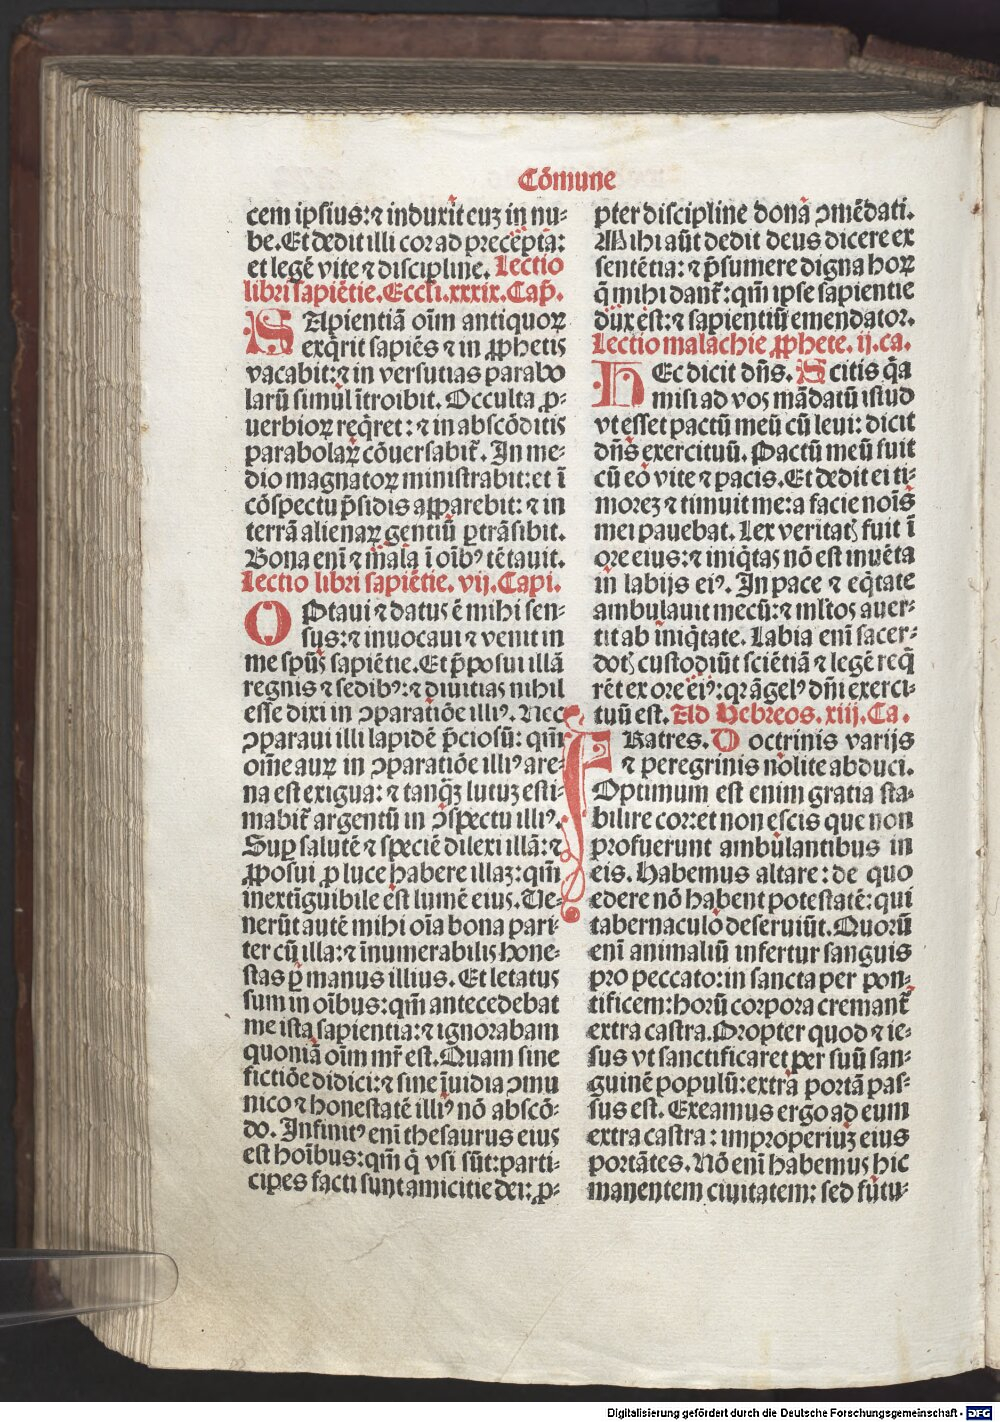 Cōmune
cem ipsius:⁊ induxit euʒ in nu-
be.Et dedit illi cor ad precepta:
et legē vite ⁊ discipline. Lectio
libri sapiētie.Eccli.xxxix.Cap̄.
SApientiā oīm antiquoꝝ
exq̄rit sapiēs ⁊ in ꝓphetis
vacabit:⁊ in versutias parabo
larū simul ītroibit. Occulta ꝓ-
uerbioꝝ req̄ret: ⁊ in abscōditis
parabolaꝝ cōuersabit᷑. In me-
dio magnatoꝝ ministrabit:et ī
cōspectu p̄sidis apparebit: ⁊ in
terrā alienaꝝ gentiū ꝑtrāsibit.
Bona enī ⁊ mala ī oībꝰ tētauit.
Lectio libri sapiētie. vij. Capi.
OPtaui ⁊ datus ē mihi sen-
sus:⁊ inuocaui ⁊ venit in
me sp̄us sapiētie.Et p̄posui illā
regnis ⁊ sedibꝰ:⁊ diuitias nihil
esse dixi in ꝯparatiōe illiꝰ. Nec
ꝯparaui illi lapidē p̄ciosū: qm̄
om̄e auꝝ in ꝯparatiōe illiꝰ are-
na est exigua: ⁊ tanq̄ʒ lutuʒ esti-
mabit᷑ argentū in ꝯspectu illiꝰ.
Suꝑ salutē ⁊ speciē dilexi illā:⁊
ꝓposui ꝓ luce habere illaʒ:qm̄
inextīguibile est lumē eius.Ue-
nerūt autē mihi oīa bona pari-
ter cū illa:⁊ īnumerabilis hone-
stas ꝑ manus illius. Et letatus
sum in oībus:qm̄ antecedebat
me ista sapientia:⁊ ignorabam
quoniā oīm mr̄ est.Quam sine
fictiōe didici:⁊ sine īuidia ꝯmu
nico ⁊ honestatē illiꝰ nō abscō-
do. Infinitꝰ enī thesaurus eius
est hoībus:qm̄ q̄ vsi sūt:parti-
cipes facti sunt amicitie dei: ꝓ-
pter discipline dona ꝯmēdati.
Mihi aūt dedit deus dicere ex
sentētia: ⁊ p̄sumere digna hoꝝ
q̄ mihi dant᷑:qm̄ ipse sapientie
dux est:⁊ sapientiū emendator.
Lectio malachie ꝓphete. ij.ca.
HEc dicit dn̄s. Scitis q̄a
misi ad vos mādatū istud
vt esset pactū meū cū leui: dicit
dn̄s exercituū. Pactū meū fuit
cū eo vite ⁊ pacis.Et dedit ei ti-
moreʒ ⁊ timuit me:a facie noīs
mei pauebat. Lex veritatꝭ fuit ī
ore eius:⁊ iniq̄tas nō est inuēta
in labijs eiꝰ. In pace ⁊ eq̄tate
ambulauit mecū:⁊ ml̄tos auer-
tit ab iniq̄tate. Labia enī sacer-
dotꝭ custodiūt sciētiā ⁊ legē req̄
rēt ex ore eiꝰ:qꝛ āgelꝰ dn̄i exerci-
tuū est. Ad Hebreos. xiij. Ca.
FRatres. Doctrinis varijs
⁊ peregrinis nolite abduci.
Optimum est enim gratia sta-
bilire cor:et non escis que non
profuerunt ambulantibus in
eis. Habemus altare: de quo
edere nō habent potestatē: qui
tabernaculo deseruiūt.Quorū
enī animaliū infertur sanguis
pro peccato:in sancta per pon-
tificem:horū corpora cremant᷑
extra castra.Propter quod ⁊ ie-
sus vt sanctificaret per suū san-
guinē populū:extra portā pas-
sus est. Exeamus ergo ad eum
extra castra: improperiuʒ eius
portātes. Nō enī habemus hic
manentem ciuitatem: sed futu-
Digitalisierung gefördert durch die Deutsche Forschungsgemeinschaft - DFG